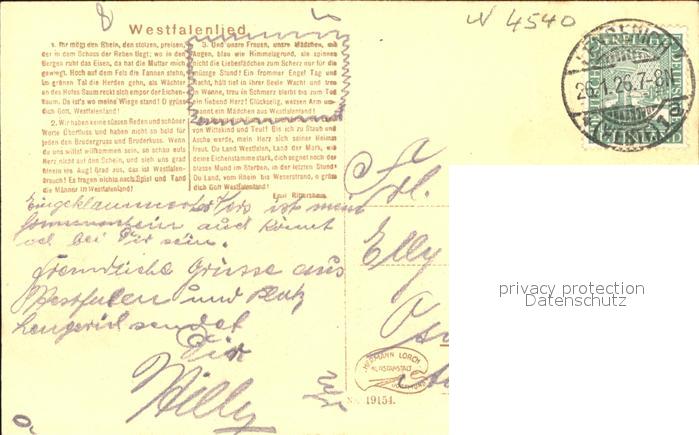 8
W 4540
Westfalenlied
1. Ihr mögt den Rhein, den stolzen, preisen,
der in dem Schoss der Reben liegt; wo in den
Bergen ruht das Eisen, da hat die Mutter mich
gewiegt. Hoch auf dem Fels die Tannen stehn,
im grünen Tal die Herden gehn, als Wächter
an des Hofes Saum reckt sich empor der Eichen-
Baum. Da ist's wo meine Wiege stand! O grüss
dich Gott, Westfalenland!
2. Wir haben keine süssen Reden und schöner
Worte Überfluss und haben nicht so bald für
jeden den Brudergruss und Bruderkuss. Wenn du
uns willst willkommen sein, so schau aufs
Herz nicht auf den Schein, und sieh uns grad
hinein ins Aug! Grad aus, das ist Westfalen-
brauch! Es fragen nichts nach Spiel und Tand
die Männer in Westfalenland!
3. Und unsre Frauen, unsre Mädchen, mit
Augen, blau wie Himmelsgrund, sie spinnen
nicht die Liebesfädchen zum Scherz nur für die
müssge Stund! Ein frommer Engel Tag und
Nacht, hält tief in ihrer Seele Wacht und treu
in Wonne, treu in Schmerz bleibt bis zum Tod
ein liebend Herz! Glückselig, wessen Arm um-
spannt ein Mädchen aus Westfalenland!
von Wittekind und Teut! Bis ich zu Staub und
Asche werde, mein Herz sich seiner Heimat
freut. Du Land Westfalen, Land der Mark, wie
deine Eichenstämme stark, dich segnet noch der
blasse Mund im Sterben, in der letzten Stund!
Du Land, vom Rhein bis Weserstrand, o grüss
dich Gott Westfalenland!
Emil Rittershaus
Eingeklammerter Vers ist mein
und kommt
bei Dir sein.
Freundliche Grüsse aus
Westfalen und
Lengerich sendet
Dir
Willy
Frl.
Elly
LENGERICH
26.1.26.7-8N
HERMANN LORCH
KUNSTANSTALT
DORTMUND
No. 19154.
privacy protection
Datenschutz